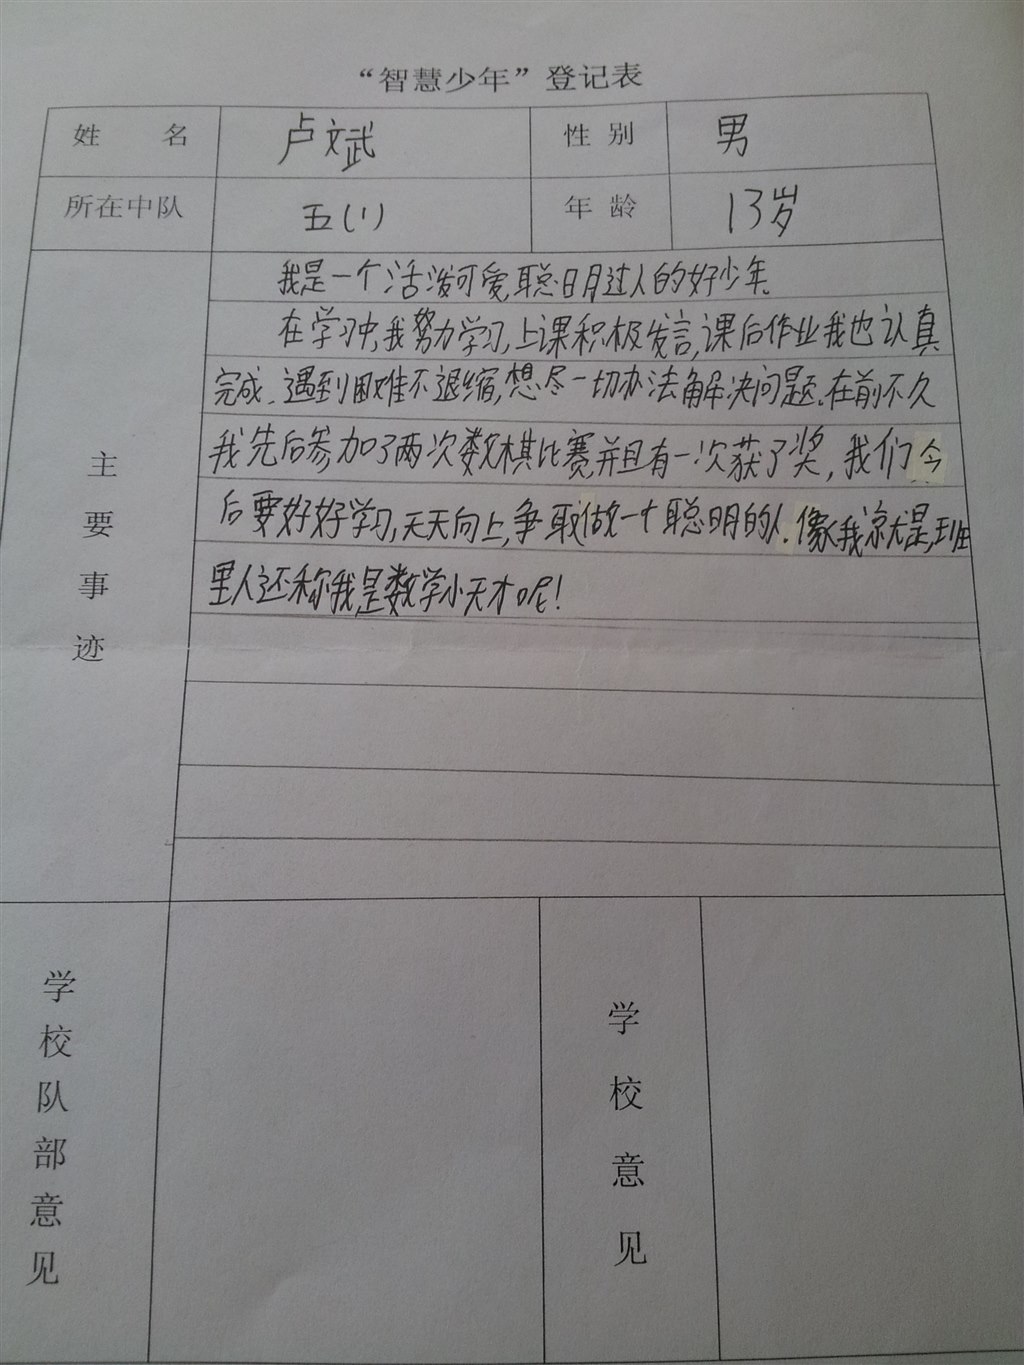 “智慧少年”登记表
姓 名 卢斌 性 别 男
所在中队 五(1) 年 龄 13岁
主要事迹
我是一个活泼可爱,聪明过人的好少年.
在学习中,我努力学习,上课积极发言,课后作业我也认真
完成.遇到困难不退缩,想尽一切办法解决问题.在前不久
我先后参加了两次数棋比赛,并且有一次获了奖,我们今
后要好好学习,天天向上,争取做一个聪明的人.像我就是,班
里人还称我是数学小天才呢!
学校队部意见
学校意见